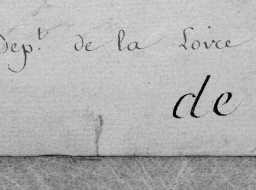 Dep.t de la Loire
de